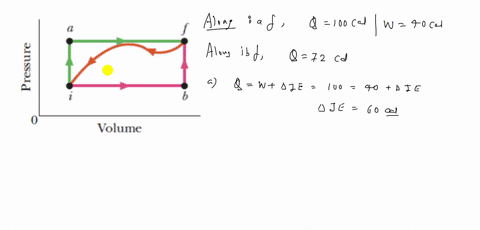 a
f
Pressure
i
b
0
Volume
Along iaf, Q = 100 cal | W = 40 cal
Along ibf, Q = 72 cal
a) Q = W + ΔIE = 100 = 40 + ΔIE
ΔIE = 60 cal